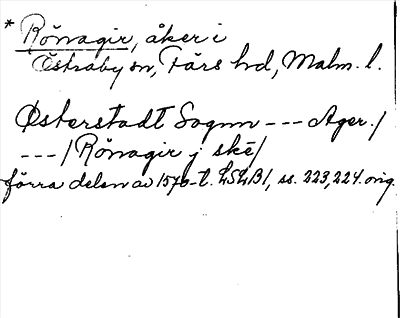 * Rönagir, åker i
Östraby sn, Färs hd, Malm. l.
Østerstadt Sognn --- Ager./
---/ Rönagir j ske/
förra delen av 1570-t. LSLB1, ss. 223, 224. orig.